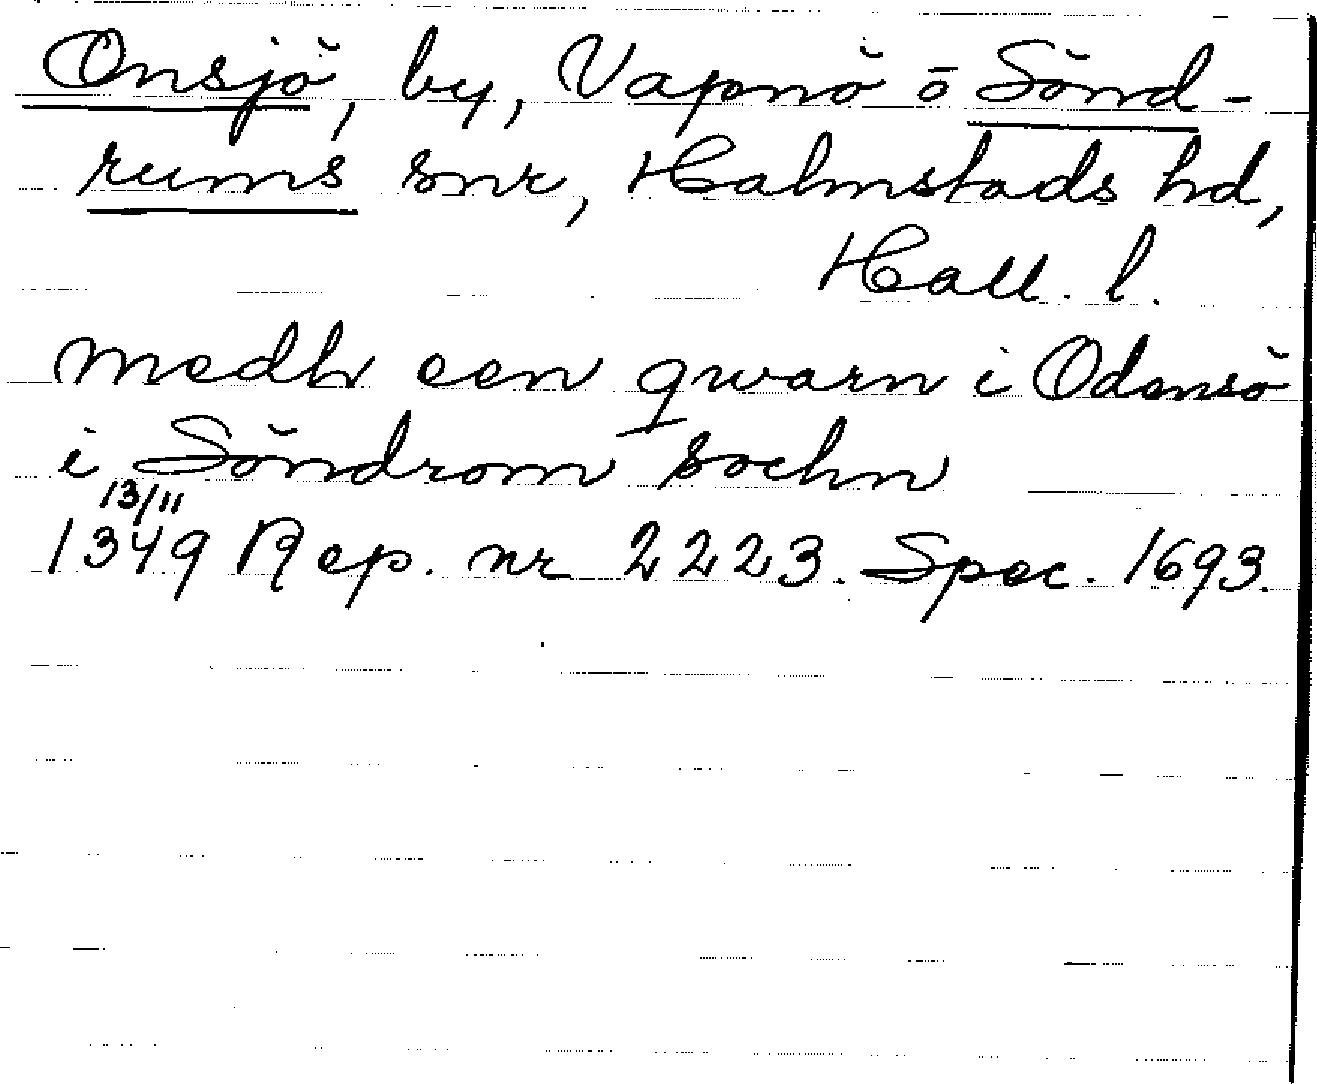 Onsjö, by, Vapnö o Sönd-
rums snr, Halmstads hd,
Hall. l.
medh een qwarn i Odensö
i Söndrom sochn
13/11
1349 Rep. nr 2223. Spec. 1693.